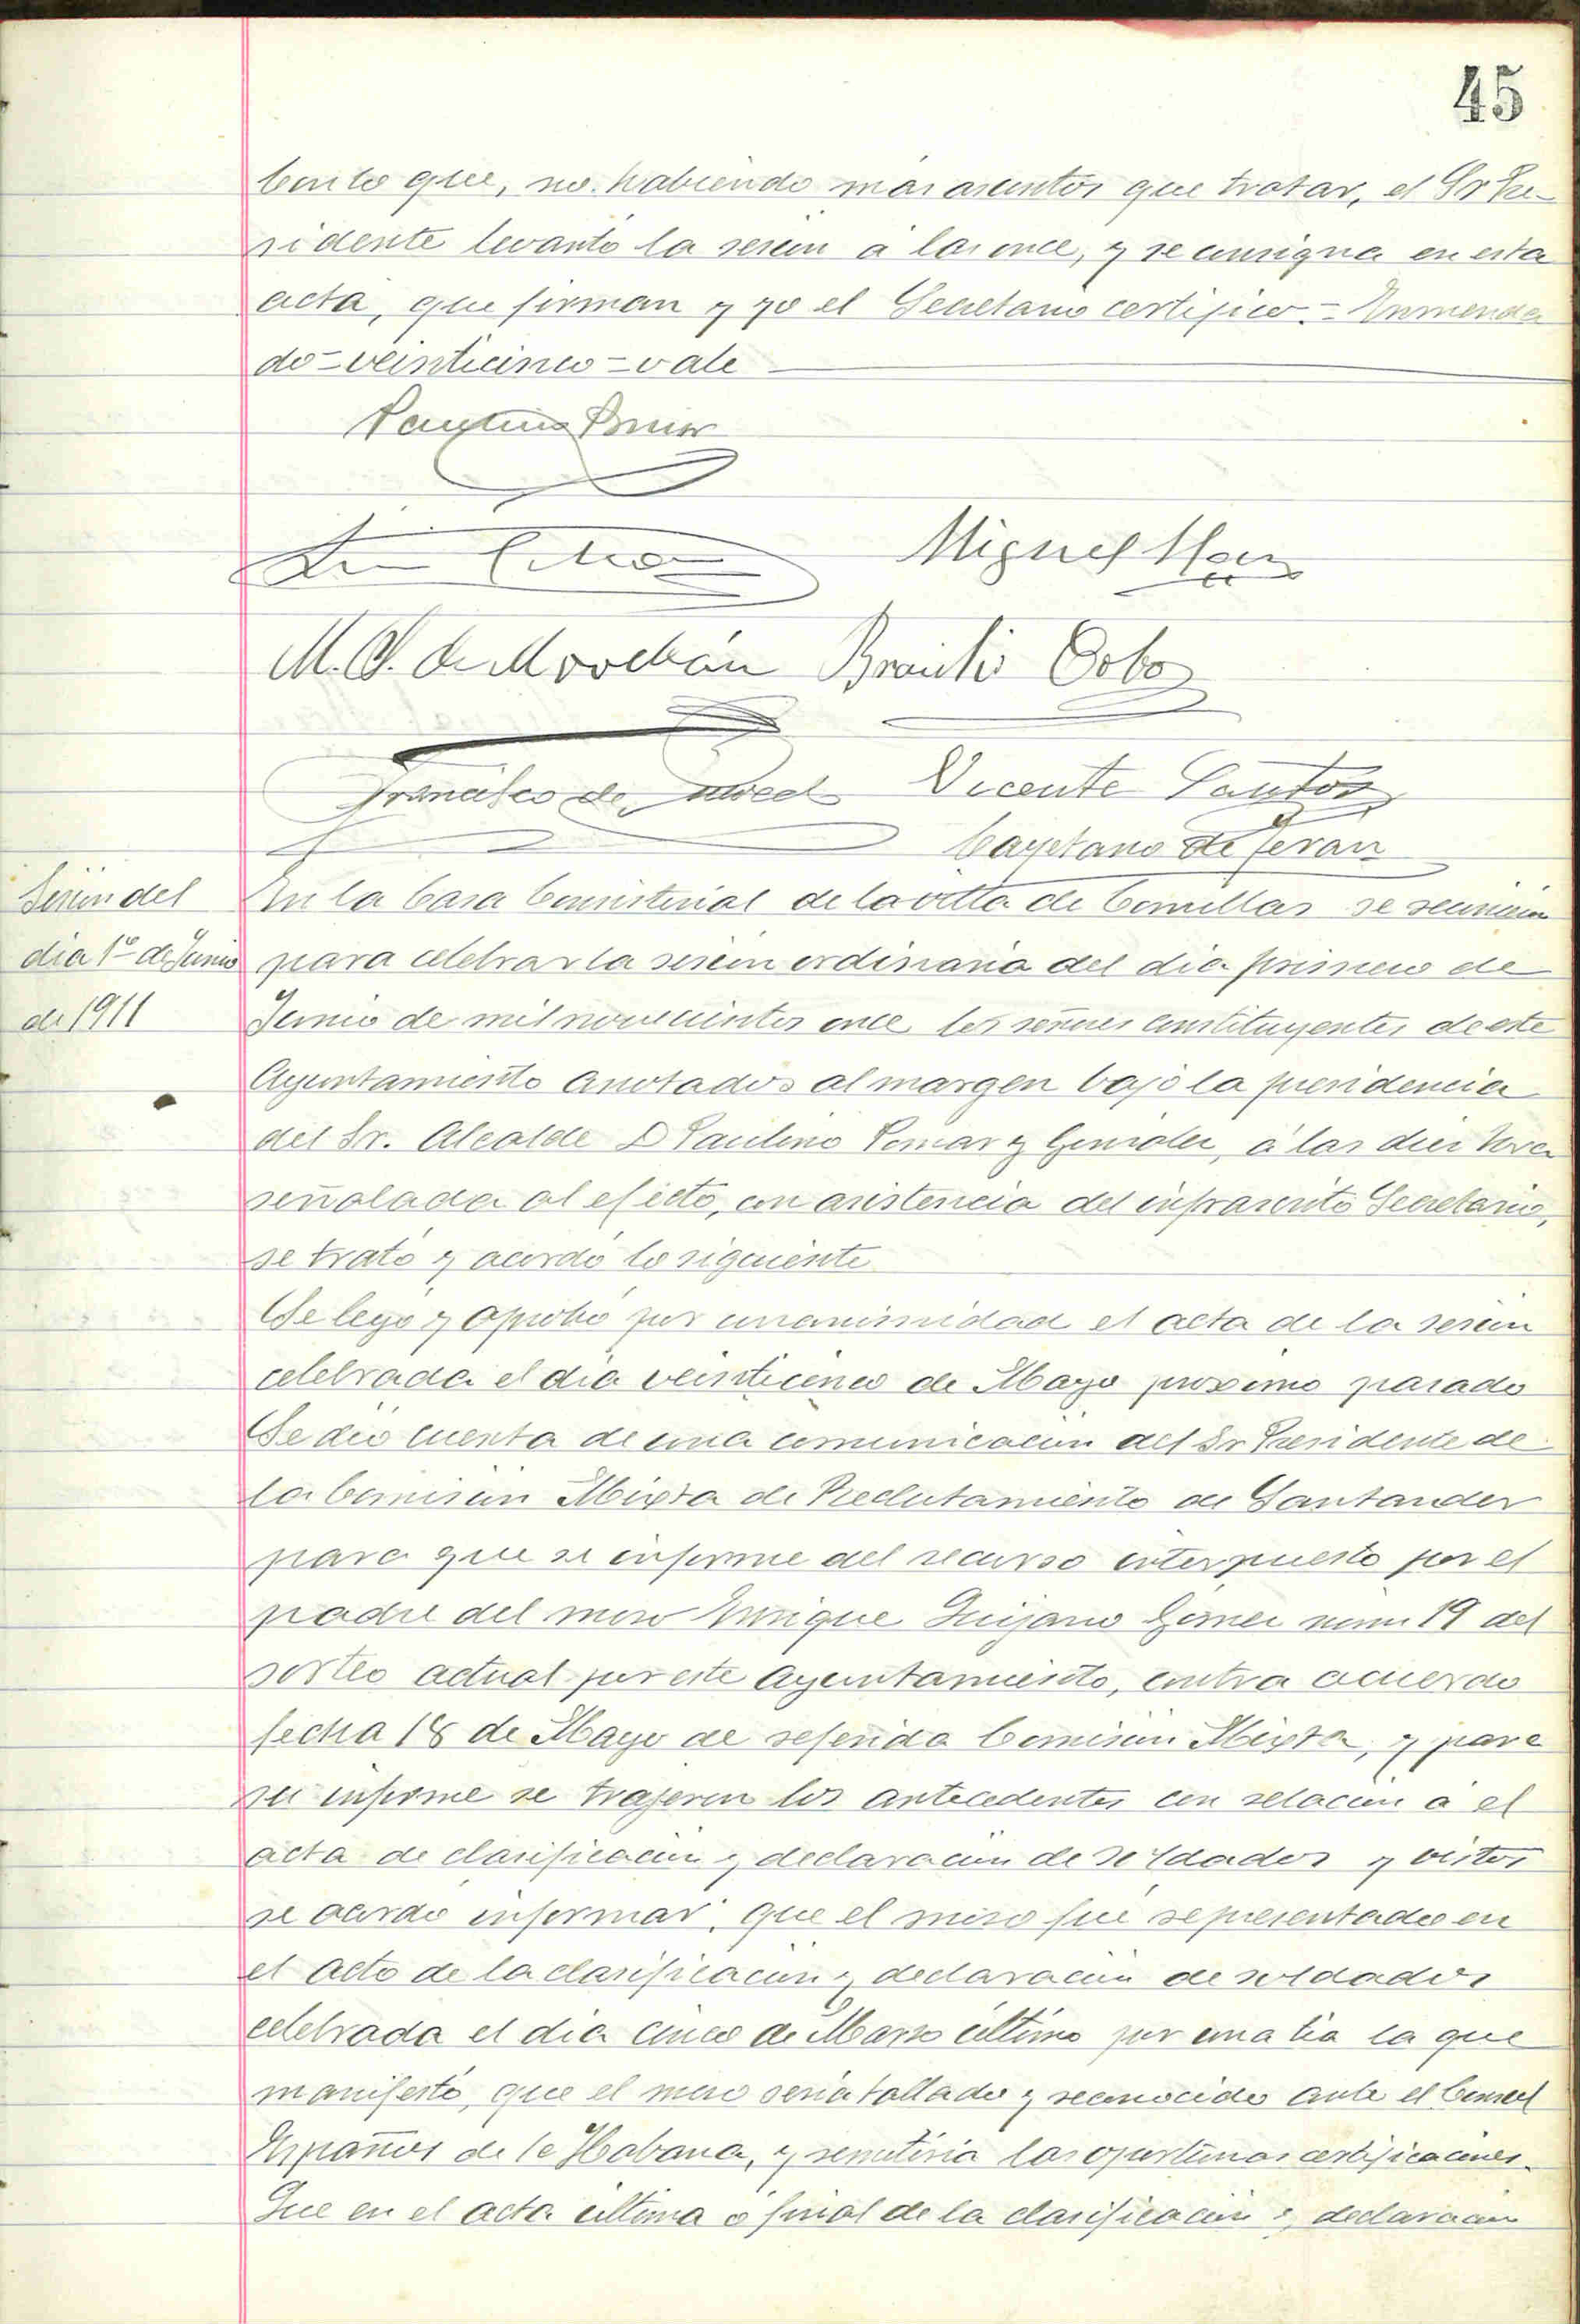 45
Con lo que, no habiendo más asuntos que tratar, el Sr Pre-
sidente levantó la sesión á las once, y se consigna en esta
acta, que firman y yo el Secretario certifico.= Enmenda
do=veinticinco=vale
Miguel
M. S. de Movellán Braulio Cobo
Francisco de Vicente Santos
Cayetano de Terán
Sesión del
día 1º de Junio
de 1911
En la Casa Consistorial de la villa de Comillas se reunieron
para celebrar la sesión ordinaria del día primero de
Junio de mil novecientos once los señores constituyentes de este
Ayuntamiento anotados al margen bajo la presidencia
del Sr. Alcalde D Paulino Pomar y González, á las diez hora
señalada al efecto, con asistencia del infrascrito Secretario,
se trató y acordó lo siguiente
Se leyó y aprobó por unanimidad el acta de la sesión
celebrada el día veinticinco de Mayo proximo pasado
Se dió cuenta de una comunicación del Sr Presidente de
la Comisión Mixta de Reclutamiento de Santander
para que se informe del recurso interpuesto por el
padre del mozo Enrique Quijano Gómez num 19 del
sorteo actual por este Ayuntamiento, contra acuerdo
fecha 18 de Mayo de referida Comisión Mixta, y para
su informe se trajeron los antecedentes con relación á el
acta de clasificación y declaración de soldados y vistos
se acordó informar: que el mozo fué representado en
el acto de la clasificación y declaración de soldados
celebrada el día cinco de Marzo último por una tía la que
manifestó, que el mozo sería tallado y reconocido ante el Consul
Español de la Habana, y remitiria las oportunas certificaciones.
Que en el acta última ó final de la clasificación y declaración